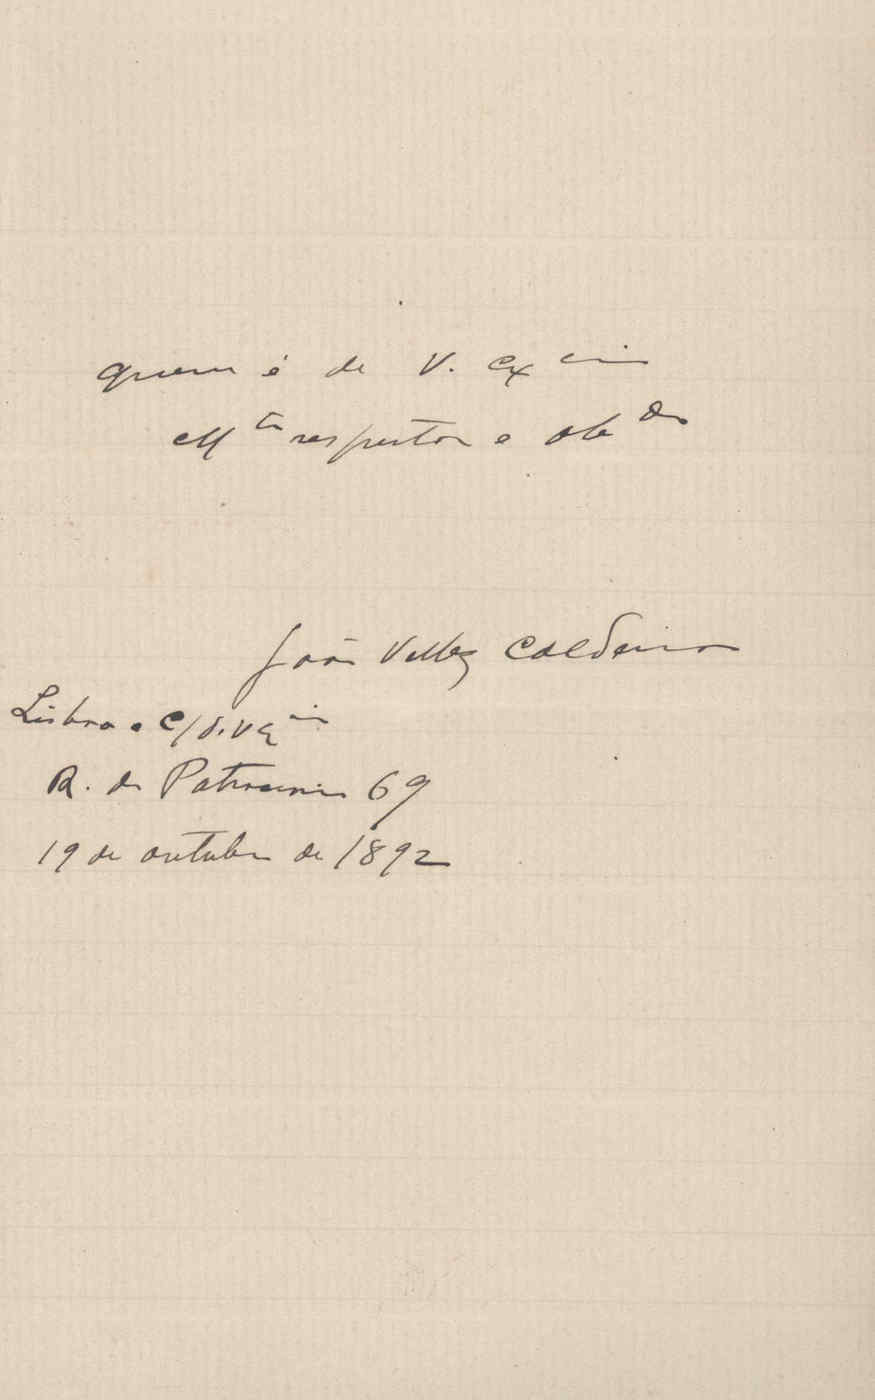 quem é de V. Ex cia
Mto respeitor e ob do
João Vellez Caldeira
Lisboa e C/ d. V Ex cia
R. do Patrocinio 69
19 de outubro de 1892